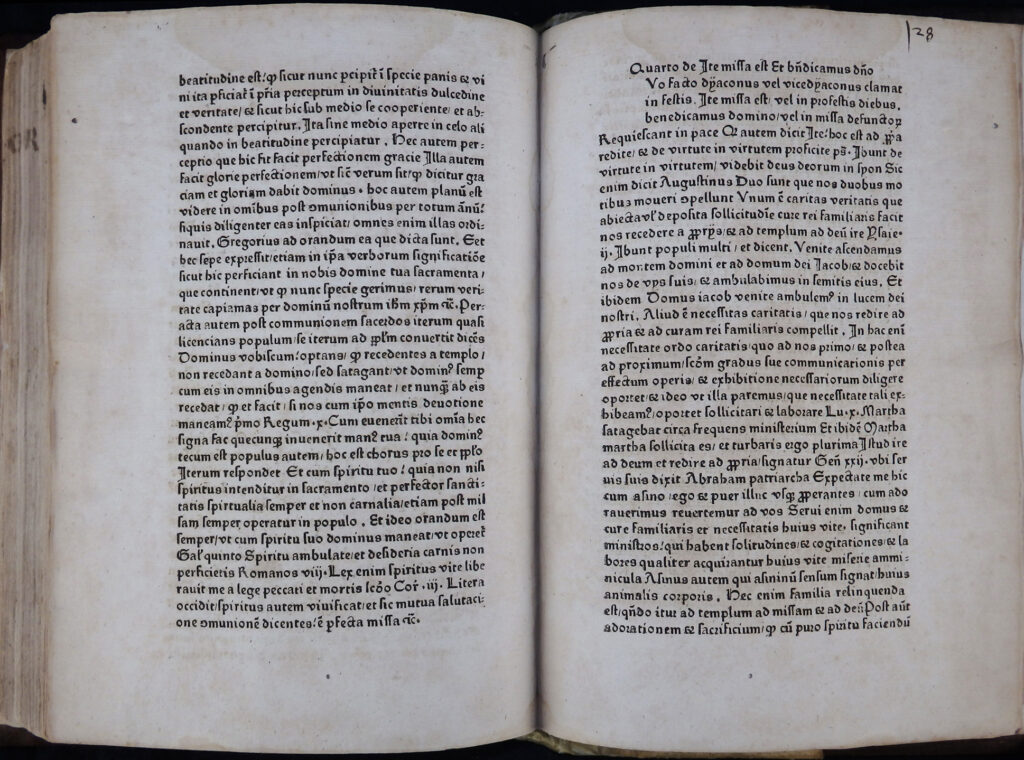 beatitudine est/ ꝙ sicut nunc ꝑcipit̃ ĩ specie panis ⁊ vi
ni ita ꝑficiat̃ ĩ ꝓria perceptum in diuinitatis dulcedine
et veritate/ ⁊ sicut hic sub medio se cooperiente/ et ab⸗
scondente percipitur. Ita sine medio aperte in celo ali
quando in beatitudine percipiatur . Hec autem per⸗
ceptio que hic fit facit perfectionem gracie Illa autem
facit glorie perfectionem/ vt sic̃ verum sit/ ꝙ dicitur gra
ciam et gloriam dabit dominus . hoc autem planũ est
videre in om̃ibus post ꝯmunionibus per totum ãnũ/
siquis diligenter eas inspiciat/ omnes enim illas ordi⸗
nauit. Gregorius ad orandum ea que dicta sunt. Set
hec sepe expressit/ etiam in ip̃a verborum significatiõe
sicut hic perficiant in nobis domine tua sacramenta/
que continent/ vt ꝙ nunc specie gerimus/ rerum veri⸗
tate capiamas per dominũ nostrum ih̃m xp̃m ⁊c̃. Per⸗
acta autem post communionem sacerdos iterum quasi
licencians populum/ se iterum ad pp̃lm conuertit dicẽs
Dominus vobiscum/ optans/ ꝙ recedentes a templo/
non recedant a domino/ sed satagant/ vt dominꝰ semꝑ
cum eis in omnibus agendis maneat/ et nunꝙ̃ ab eis
recedat/ ꝙ et facit/ si nos cum ip̃o mentis deuotione
maneamꝰ p̃mo Regum .x. Cum euenerĩt tibi om̃ia hec
signa fac quecunꝗ inuenerit manꝰ tua/ quia dominꝰ
tecum est populus autem/ hoc est chorus pro se et pp̃lo
Iterum respondet Et cum spiritu tuo/ quia non nisi
spiritus intenditur in sacramento/ et perfector sancti⸗
tatis spirtualia semper et non carnalia/ etiam post mil
sam semper operatur in populo . Et ideo orandum est
semper/ vt cum spiritu suo dominus maneat/ vt operet̃
Gal̃ quinto Spiritu ambulate/ et desideria carnis non
perficietis Romanos viij. Lex enim spiritus vite libe
rauit me a lege peccati et mortis scd̃o Cor̃ .iij. Litera
occidit/ spiritus autem viuificat/ et sic mutua salutaci⸗
one ꝯmunionẽ dicentes/ ẽ ꝑfecta missa ⁊c̃.
128
Quarto de Ite missa est Et bñdicamus dño
Vo facto dyaconus vel vicedyaconus clamat
in festis. Ite missa est/ vel in profestis diebus.
benedicamus domino/ vel in missa defunctoꝝ
Requiescant in pace Q̃ autem dicit Ite/ hoc est ad ꝓp̃a
redite/ ⁊ de virtute in virtutem proficite pš. Ibunt de
virtute in virtutem/ videbit deus deorum in syon Sic
enim dicit Augustinus Duo sunt que nos duobus mo
tibus moueri ꝯpellunt Vnum ẽ caritas veritatis que
abiecta vl̃ deposita sollicitudĩe cure rei familiaris facit
nos recedere a ꝓprijs/ ⁊ ad templum ad deũ ire Ysaie⸗
ij. Ibunt populi multi/ et dicent. Venite ascendamus
ad montem domini et ad domum dei Iacob/ ⁊ docebit
nos de vijs suis/ ⁊ ambulabimus in semitis eius. Et
ibidem Domus iacob venite ambulemꝰ in lucem dei
nostri. Aliud ẽ necessitas caritatis/ que nos redire ad
ꝓpria ⁊ ad curam rei familiaris compellit . In hac enĩ
necessitate ordo caritatis/ quo ad nos primo/ ⁊ postea
ad proximum/ scd̃m gradus sue communicationis per
effectum operis/ ⁊ exhibitione necessariorum diligere
oportet/ ⁊ ideo vt illa paremus/ que necessitate tali ex⸗
hibeamꝰ/ oportet sollicitari ⁊ laborare Lu. x. Martha
satagebat circa frequens ministerium Et ibidẽ Martha
martha sollicita es/ et turbaris ergo plurima Istud ire
ad deum et redire ad ꝓpria/ signatur Geñ xxij. vbi ser
uis suis dixit Abraham patriarcha Expectate me hic
cum asino/ ego ⁊ puer illuc vsꝗ ꝓperantes/ cum ado
rauerimus reuertemur ad vos Serui enim domus ⁊
cure familiaris et necessitatis huius vite. significant
ministros/ qui habent solitudines/ ⁊ cogitationes/ ⁊ la
bores qualiter acquirantur huius vite miserie ammi⸗
nicula Asinus autem qui asininũ sensum signat/ huius
animalis corporis . Hec enim familia relinquenda
est/ qñdo itur ad templum ad missam ⁊ ad deũ Post aũt
adorationem ⁊ sacrificium/ ꝙ cũ puro spiritu faciendũ